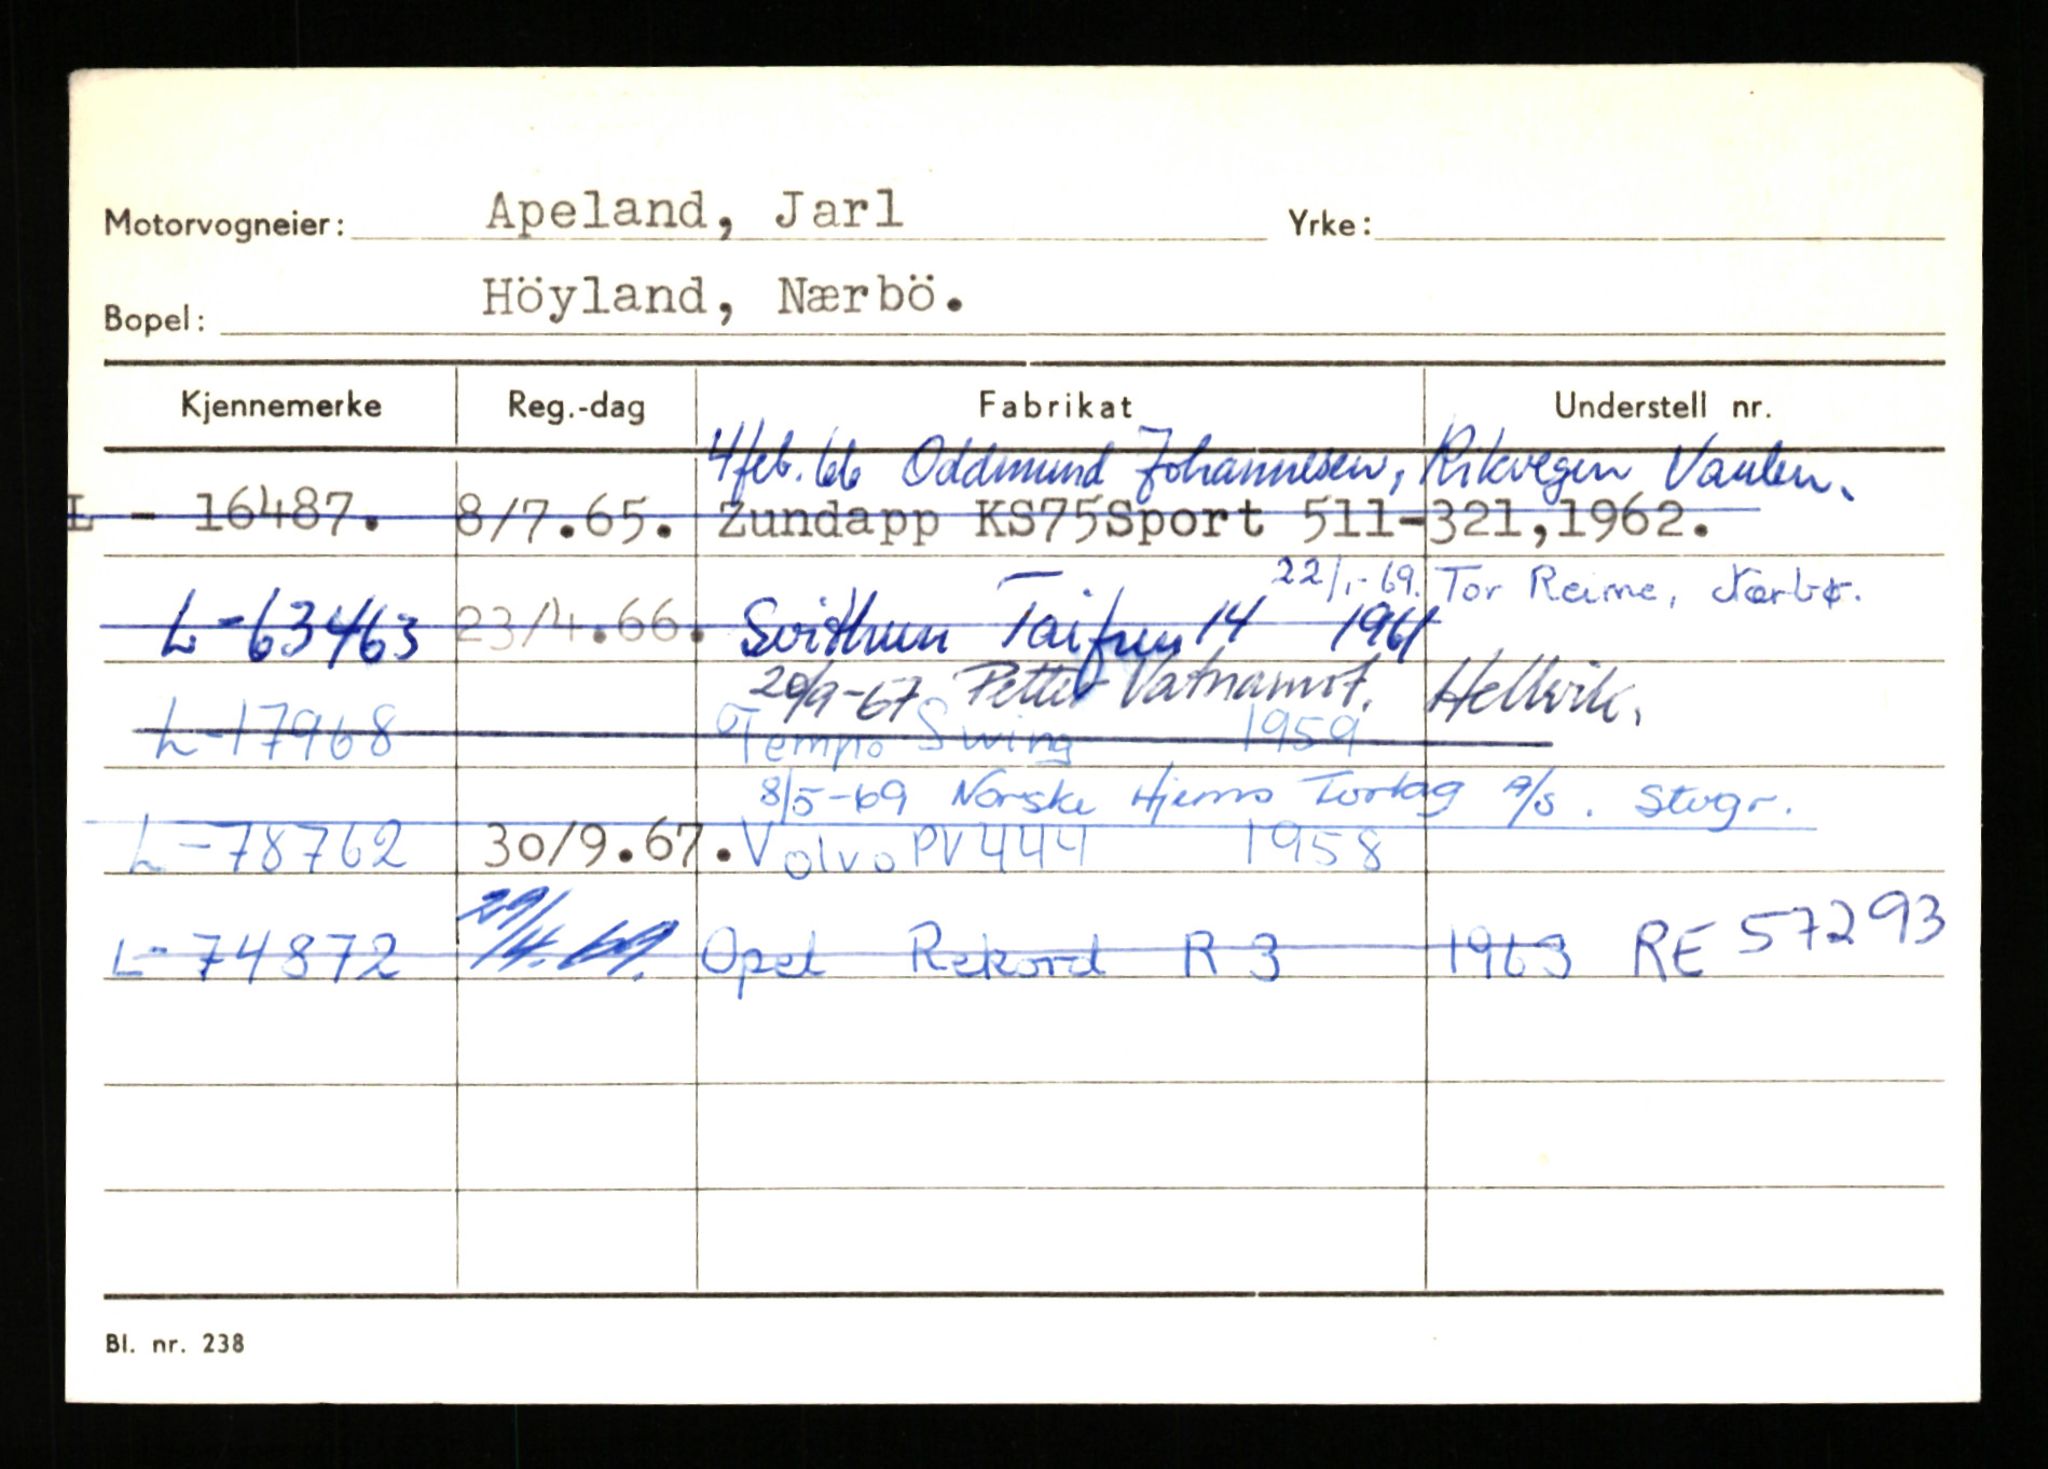 Motorvogneier: Apeland, Jarl Yrke:
Bopel: Höyland, Nærbö.
Kjennemerke Reg.-dag Fabrikat Understell nr.
4 feb. 66 Oddmund Johannesen, Rikvegen Vaulen.
L - 16487. 8/7.65. Zundapp KS75Sport 511-321,1962.
22/1-69. Tor Reime, Nærbø.
L-63463 23/4.66. Svithun Taifun 14 1961
20/9-67 Petter Vatnamot, Hellvik.
L-17968 Tempo Swing 1959
8/5-69 Norske Hjems Forlag A/S. Stvgr.
L-78762 30/9.67. Volvo PV444 1958
L-74872 29/4.69. Opel Rekord R 3 1963 RE 57293
Bl. nr. 238